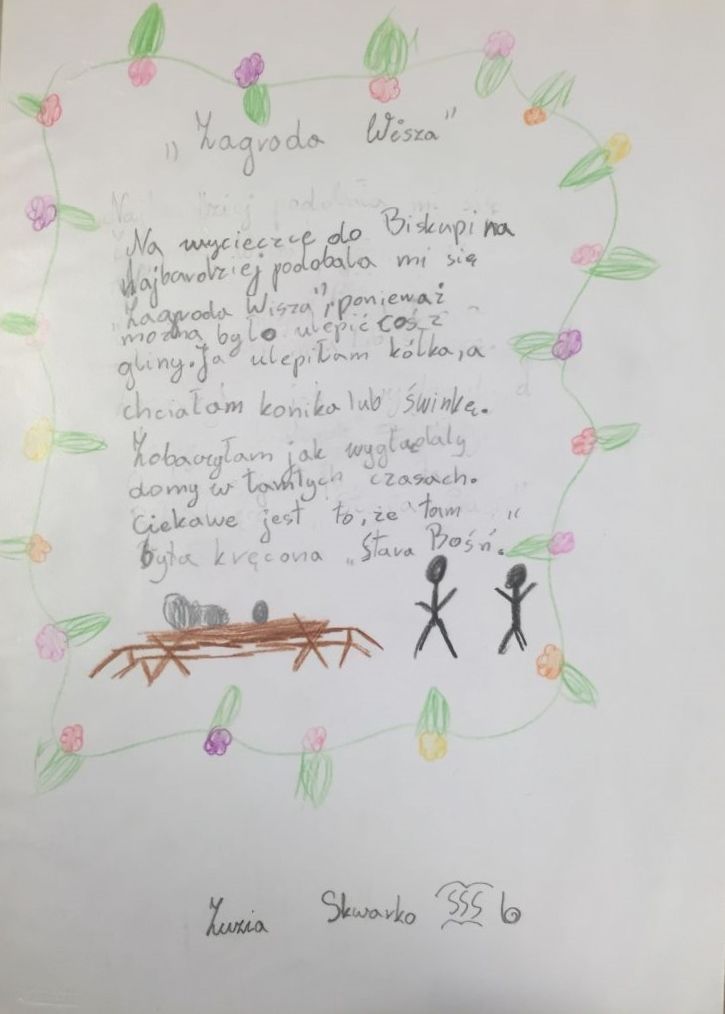 „Zagroda Wisza"
Na wycieczce do Biskupina
Najbardziej podobała mi się
„Zagroda Wisza", ponieważ
można było ulepić coś z
gliny. Ja ulepiłam kólka, a
chciałam konika lub świnkę.
Zobaczyłam jak wyglądały
domy w tamtych czasach.
Ciekawe jest to, że tam
była kręcona „Stara Bośń".
Zuzia Skwarko